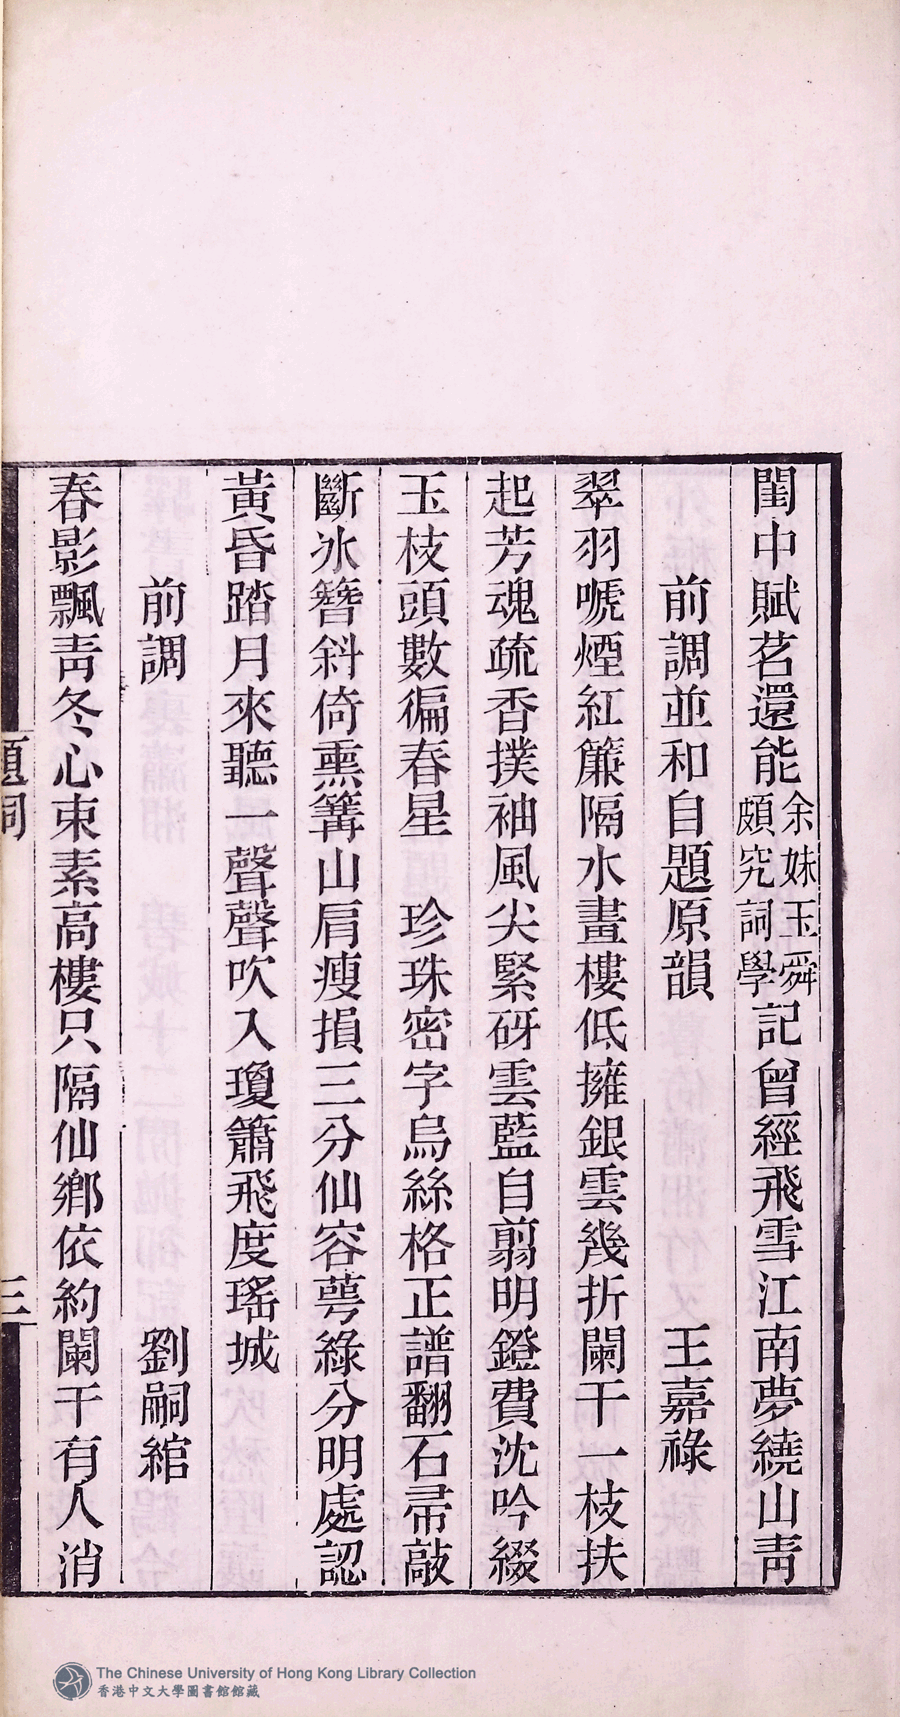 閨中賦茗還能余妹玉舜頗究詞學記曾經飛雪江南夢繞山靑
前調並和自題原韻 王嘉祿
翠羽嗁煙紅簾隔水畫樓低擁銀雲幾折闌干一枝扶
起芳魂疏香撲袖風尖緊砑雲藍自翦明鐙費沈吟綴
玉枝頭數徧春星 珍珠密字烏絲格正譜翻石帚敲
斷冰簪斜倚熏篝山肩瘦損三分仙容萼綠分明處認
黃昏踏月來聽一聲聲吹入瓊簫飛度瑤城
前調 劉嗣綰
春影飄靑冬心束素高樓只隔仙鄉依約闌干有人消
題詞
三
The Chinese University of Hong Kong Library Collection
香港中文大學圖書館館藏